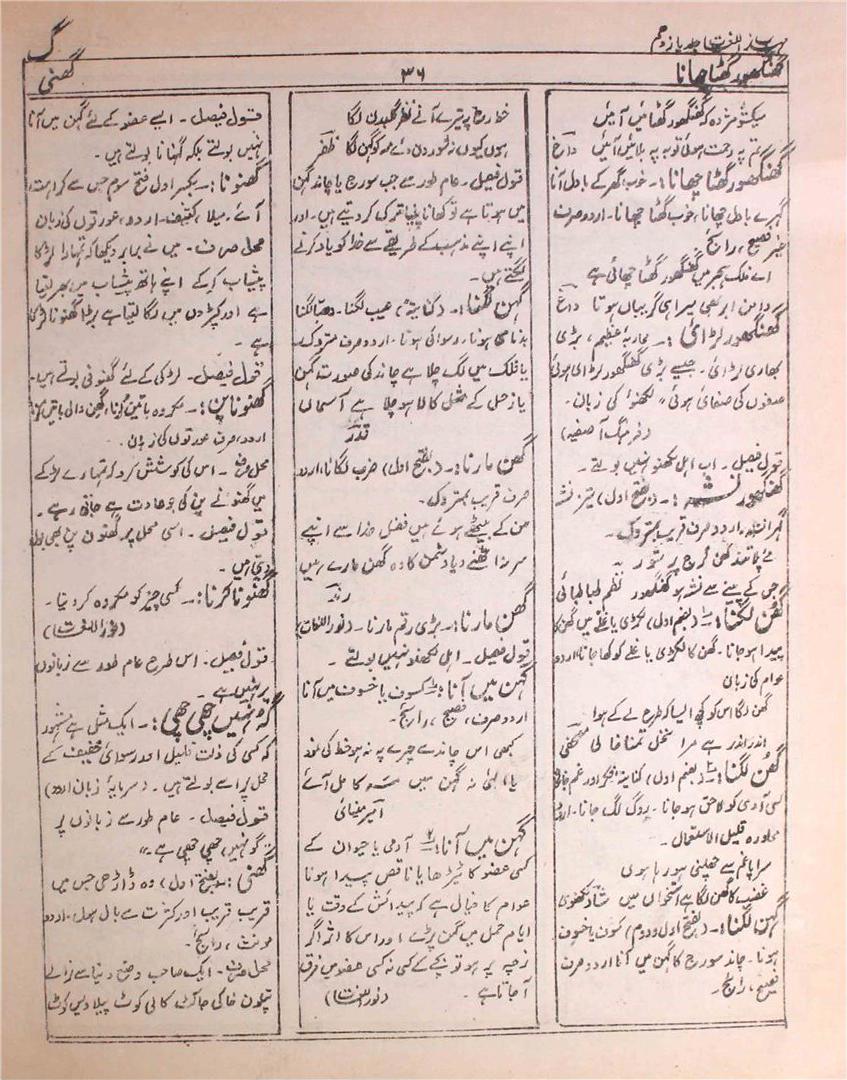 مہذب اللغت، جلد یازدہم
گ
گھنگھور گھٹا چھانا
۳۶
گھنی
میکشو مژدہ کہ گھنگھور گھٹائیں آئیں
تم پہ رحمت ہوئی توبہ پہ بلائیں آئیں داغ
گھنگھور گھٹا چھانا :۔ خوب گھر کے بادل آنا
گہرے بادل چھانا، خوب گھٹا چھانا۔ اردو صرف
غیر فصیح، رائج۔
اے فلک ہجر میں گھنگھور گھٹا چھائی ہے
دامن ابر بھی میرا ہی گریباں ہوتا داغ
گھنگھور لڑائی :۔ محاربۂ عظیم، بڑی
بھاری لڑائی۔ جیسے بڑی گھنگھور لڑائی ہوئی
صفوں کی صفائی ہوئی" لکھنؤ کی زبان۔
(فرہنگ آصفیہ)
قول فیصل۔ اب اہل لکھنؤ نہیں بولتے۔
گھنگھور نشہ :۔ (بفتح اول) تیز نشہ
گہرا نشہ، اردو صرف قریب بمتروک۔
جس کے پینے سے نشہ ہو گھنگھور نظم طباطبائی
گھن لگنا :۔ (بضم اول) لکڑی یا غلے میں گھن کا
پیدا ہو جانا۔ گھن کا لکڑی یا غلے کو کھا جانا، اردو
عوام کی زبان
گھن لگا اس کو کچھ ایسا کہ طرح لے کے ہوا
اندر اندر ہے مرا نخل تمنا خالی مصحفی
گھن لگنا :۔ (بضم اول، کنایۃً) فکر اور غم جانی
کسی آدمی کو لاحق ہو جانا۔ روگ لگ جانا۔ اردو
محاورہ قلیل الاستعمال۔
سراپا غم سے چھلنی ہو رہا ہوں
غضب کا گھن لگا ہے استخواں میں شاد لکھنوی
گہن لگنا :۔ (بفتح اول و دوم) کسوف یا خسوف
ہونا۔ چاند سورج کا گہن میں آنا اردو صرف
فصیح، رائج۔
خط رخ پر ترے آنے نظر گلبدن لگا
ہوں کیوں نہ خور دن دئے مہ کو گہن لگا ظفر
قول فیصل۔ عام طور سے جب سورج یا چاند گہن
میں ہوتا ہے تو کھانا پینا ترک کر دیتے ہیں۔ اور
اپنے اپنے مذہب کے طریقے سے خدا کو یاد کرنے
لگتے ہیں۔
گہن لگنا :۔ (کنایۃً) عیب لگنا۔ دھبّا لگنا
بدنامی ہونا، رسوائی ہونا۔ اردو صرف متروک۔
یا فلک میں لگ چلا ہے چاند کی صورت گہن
یا زحل کے مثل کالا ہو چلا ہے آسماں
قدر
گھن مارنا :۔ (بفتح اول) ضرب لگانا، اردو
صرف قریب بمتروک۔
من کے بیٹھے ہوئے ہیں فضل خدا سے اپنے
سر نہ اٹھنے دیا دشمن کا وہ گھن مارے ہیں
رند
گھن مارنا :۔ بڑی رقم مارنا۔ (نور اللغات)
قول فیصل۔ اہل لکھنؤ نہیں بولتے۔
گہن میں آنا :۔ کسوف یا خسوف میں آنا
اردو صرف، فصیح، رائج۔
کبھی اس چاند سے چہرے پہ نہ ہو خط کی نمود
یا الٰہی نہ گہن میں مہ کامل آئے
امیر مینائی
گہن میں آنا :۔ آدمی یا حیوان کے
کسی عضو کا ٹیڑھا یا ناقص پیدا ہونا
عوام کا خیال ہے کہ پیدائش کے وقت یا
ایام حمل میں گہن پڑے اور اس کا اثر اگر
زچہ پر ہو تو بچے کے کسی نہ کسی عضو میں فرق
آ جاتا ہے۔ (نور اللغت)
قول فیصل۔ ایسے عضو کے لئے گہن میں آنا
نہیں بولتے بلکہ گہنانا بولتے ہیں۔
گھنونا :۔ بکسر اول فتح سوم جس سے کراہت
آئے، میلا، کثیف، اردو، عورتوں کی زبان
محل صرف۔ میں نے برابر دیکھا کہ تمہارا لڑکا
پیشاب کر کے اپنے ہاتھ پیشاب میں بھر لیتا
ہے اور کپڑوں میں لگا لیتا ہے بڑا گھنونا لڑکا
ہے۔
قول فیصل۔ لڑکی کے لئے گھنونی بولتے ہیں۔
گھنونا پن :۔ مکروہ باتیں کرنا، گھن والی باتیں کرنا
اردو صرف عورتوں کی زبان۔
محل صرف۔ اس کی کوشش کرو کہ تمہارے لڑکے
میں گھنونے پن کی جو عادت ہے جاتی رہے۔
قول فیصل۔ اسی محل پر گھنون پن بھی بول
دیتی ہیں۔
گھنونا کرنا :۔ کسی چیز کو مکروہ کر دینا۔
(نور اللغت)
قول فیصل۔ اس طرح عام طور سے زبانوں
پر نہیں ہے۔
گہ نہیں چھی چھی :۔ ایک مثل ہے مشہور
کہ کسی کی ذلت قلیل اور رسوائی خفیف کے
محل پر اسے بولتے ہیں۔ (سرمایۂ زبان اردو)
قول فیصل۔ عام طور سے زبانوں پر
"گو نہیں، چھی چھی ہے"
گھنی :۔ (بفتح اول) وہ ڈاڑھی جس میں
قریب قریب اور کثرت سے بال ہوں، اردو
مونث، رائج۔
محل صرف۔ ایک صاحب وضع دنیا سے نرالے
پتلون خاکی جاکٹ کالی کوٹ پیلا ویس کوٹ